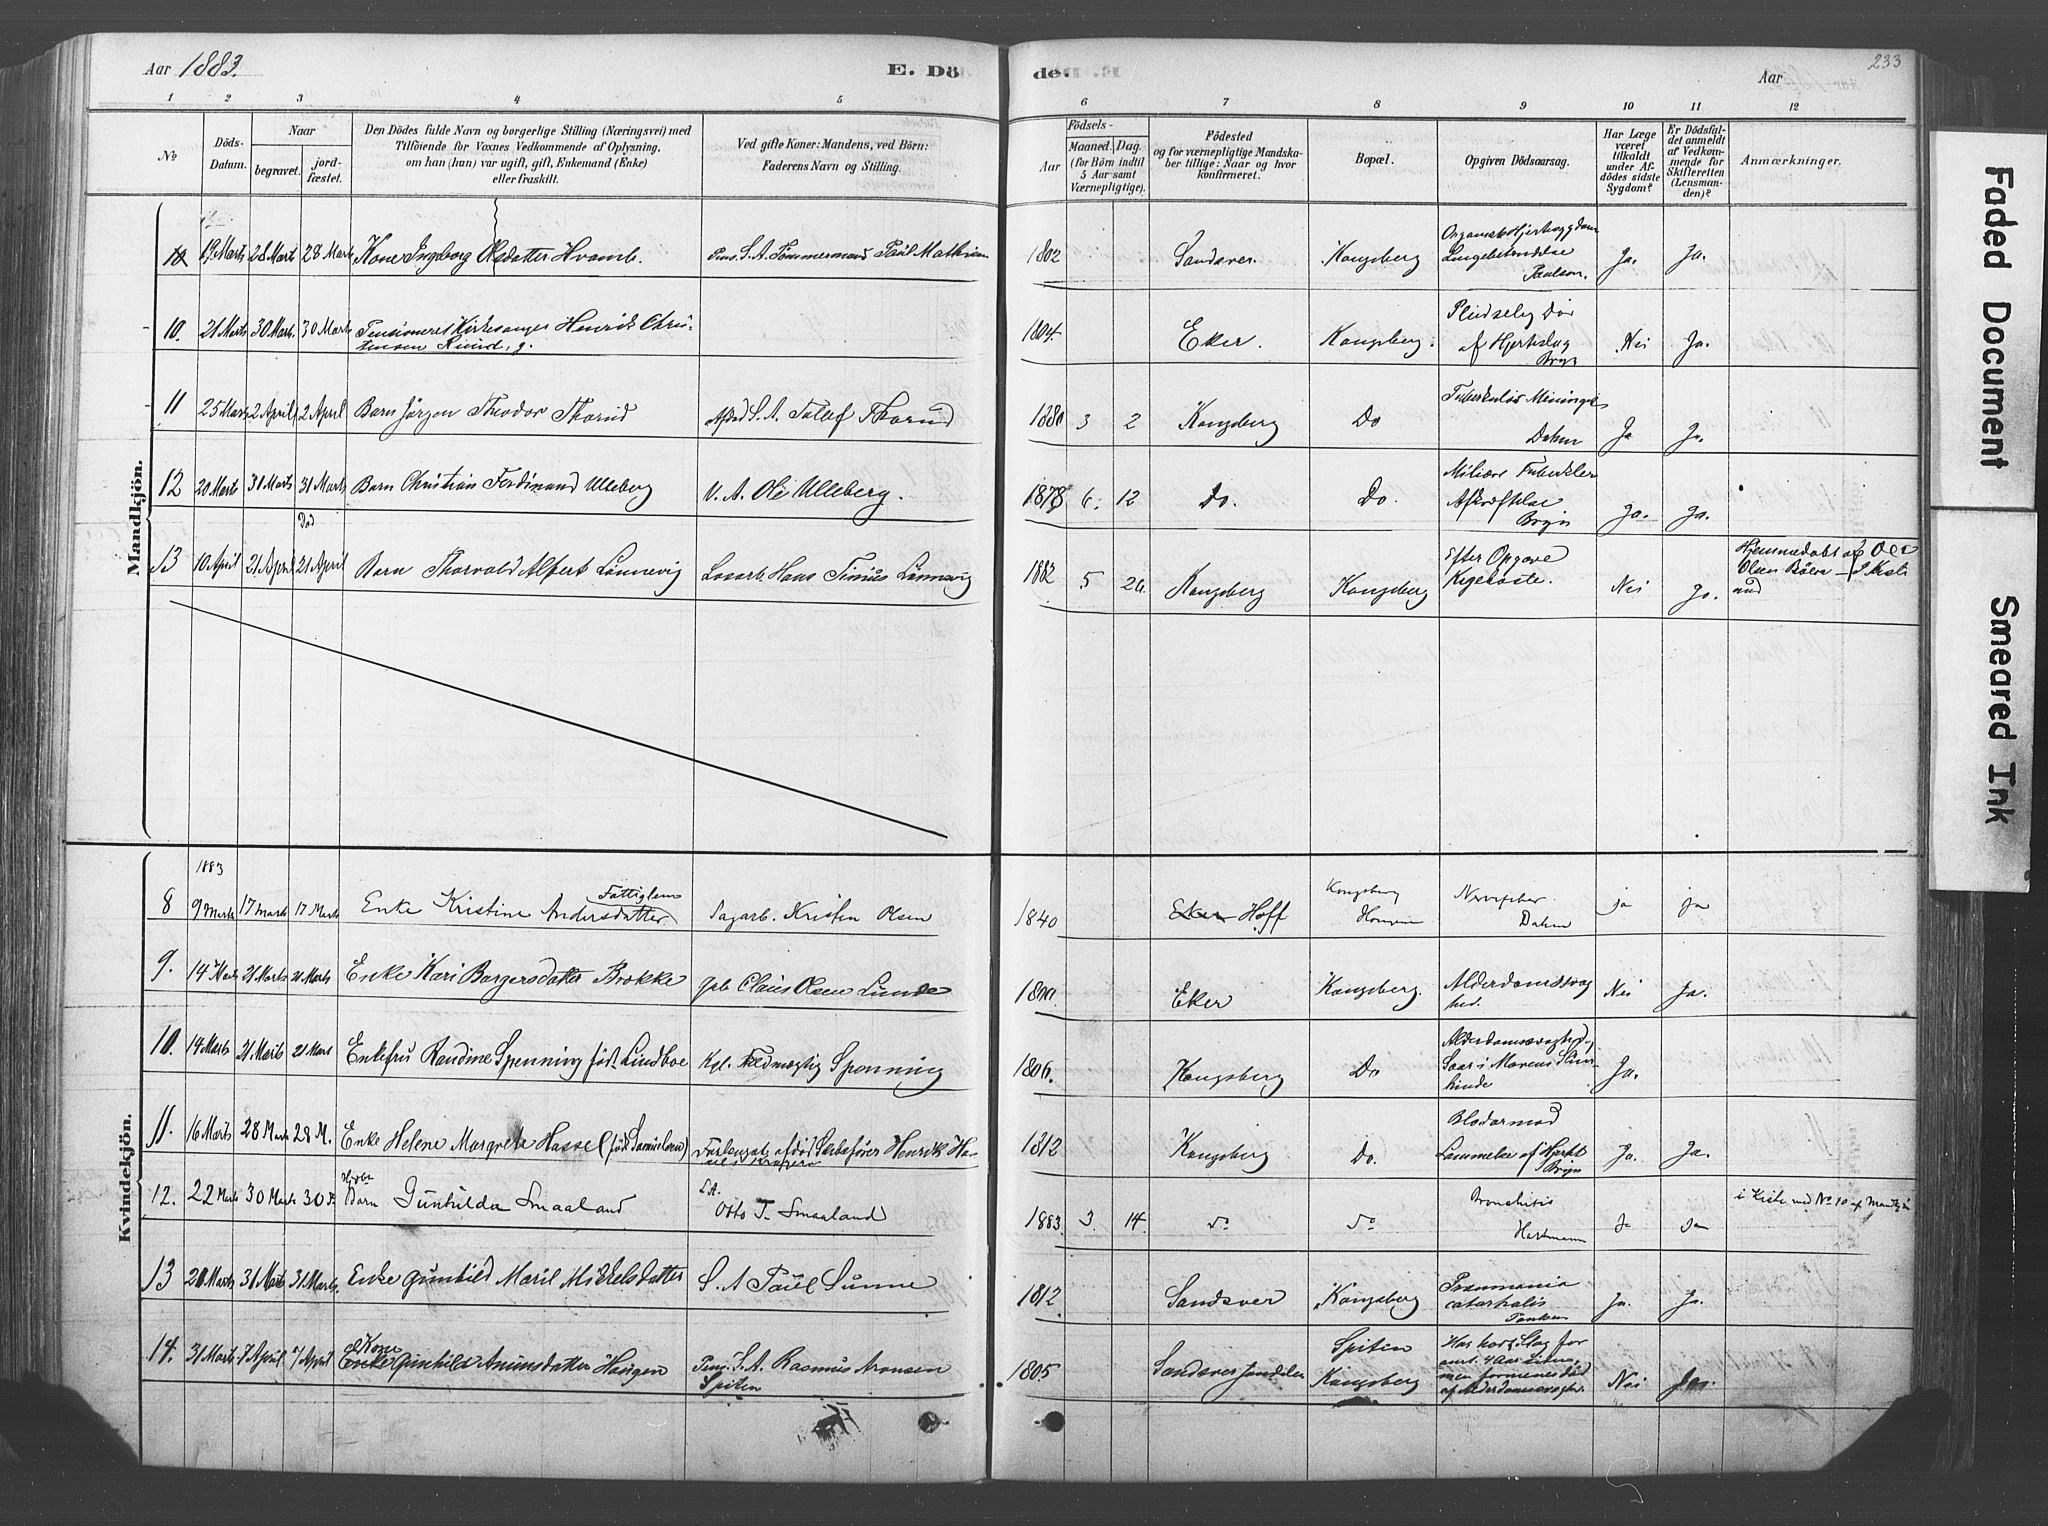 Aar 1883.
E. Dö
de. E.
Aar
233
1 2 3 4 5 6 7 8 9 10 11 12
No
Döds-
Datum.
Naar
begravet.
jord-
fæstet.
Den Dödes fulde Navn og borgerlige Stilling (Næringsvei) med
Tilföiende for Voxnes Vedkommende af Oplysning,
om han (hun) var ugift, gift, Enkemand (Enke)
eller fraskilt.
Ved gifte Koner: Mandens, ved Börn:
Faderens Navn og Stilling.
Födsels-
Aar
Maaned. Dag.
(for Börn indtil
5 Aar samt
Værnepligtige).
Födested
og for værnepligtige Mandska-
ber tillige: Naar og hvor
konfirmeret.
Bopæl.
Opgiven Dödsaarsag.
Har Læge
været
tilkaldt
under Af-
dödes sidste
Sygdom?
Er Dödsfal-
det anmeldt
af Vedkom-
mende for
Skifteretten
(Lensman-
den)?
Anmærkninger.
Mandkjön.
19 Marts 28 Mart 28 Mart Kone Ingeborg Olsdatter Hvamb. Pens. S. A. Tømmermand Paul Mathisen 1802 Sandsver. Kongsberg Organisk Hjertesygdom
Lungebetændelse
Paulson. Ja. Ja.
10. 21 Marts 30 Marts 30 Marts Pensioneret Kirkesanger Henrik Chris-
tensen Ruud, g. 1804. Eker. Kongsberg. Pludselig Død
af Hjerteslag
Bryn Nei Ja.
11 25 Marts 2 April 2 April Barn Jørgen Theodor Thorud Afdød S. A. Tolef Thorud 1880 3 2 Kongsberg Do Tuberkuløs Meningit
Dahm Ja Ja.
12 20 Marts 31 Marts 31 Marts Barn Christian Ferdinand Ulleberg V. A. Ole Ulleberg. 1878 6. 12 Do. Do. Miliære Tuberkler
Afkræftelse
Bryn Ja. Ja.
13 10 April 21 April 21 April Barn Thorvald Alfert Lønnevig Losarb. Hans Timius Lønnevig 1882 5 26. Kongsberg Kongsberg Efter Opgave
Kighoste. Nei Ja. Hjemmedøbt af Ole
Olsen
Kvindekjön.
1883
8 9 Marts 17 Marts 17 Marts Enke Kristine Andersdatter Fattiglem Dagarb. Kristen Olsen 1840 Eker Hoff Kongsberg
Nervefeber.
Dahm ja ja
9. 14 Marts 21 Marts 21 Marts Enke Kari Borgersdatter Brokke Grb Claus Olsen Lunde Eker Kongsberg. Alderdomssvag
hed. Nei Ja.
10. 14 Marts 21 Marts 21 Mart Enkefru Randine Spenning født Lindboe Kgl. Fuldmægtig Spenning 1806. Kongsberg Do Alderdomssvaghed,
Saar i Ja.
11. 16 Marts 28 Mar 28 M. Enke Helene Margrete Hassel (født Samuelsen) afdød Henrik 1812 Kongsberg Do. Blodarmod
Lammelse af Hjertet
Bryn Ja. Ja.
12. 22 Marts 30 Marts 30 Barn Gunhilda Smaaland S.A.
Otto T. Smaaland 1883. 3. 14. do do Bronchitis
Hartmann Ja Ja i Kiste med No 10 af Mandkjøn
13 21 Marts 31 Marts 31 Marts. Enke Gunhild Maril Mikkelsdatter S. A Paul Sunne 1812. Sandsver Kongsberg Pneumonia
catarhalis
Ja. Ja.
14. 31 Marts 7 April 7 April Kone
Enke Gunhild Amunsdatter Haugen Pens. S. A. Rasmus Aronsen
Spiten 1805. Sandsver Jondalen Spiten
Kongsberg Har havt Slag for
omt. 4 Aar siden,
men formenes død
af Alderdomssvaghed. Nei Ja.
Faded Document
Smeared Ink